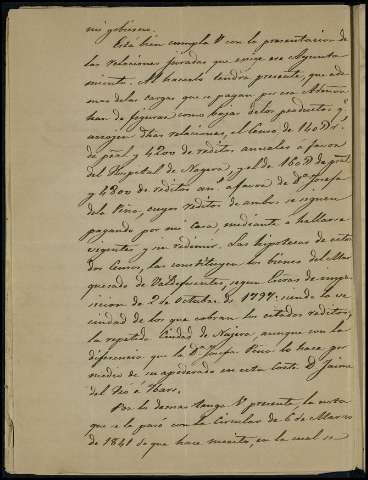 mi gobierno.
Está bien cumpla V con la presentacion de
las relaciones juradas que exige ese Ayunta
miento. Al hacerlo tendra presente, que ade
mas de las cargas que se pagan por esa Admon
han de figurar como bajas de los productos qe
arrojen dhas relaciones, el Censo de 140 D rs
de pral y 4200 de reditos anuales a favor
del Hospital de Nagera, y el de 160 D de pral
y 4800 de reditos an. a favor de Da Josefa
dela Pino, cuyos reditos de ambos se siguen
pagando por mi casa, mediante a hallarse
vigentes y sin redimir. Las hipotecas de estos
dos Censos, las constituyen los bienes del Mar
quesado de Valdefuentes, segun Criras de impo
sicion de 2 de Octubre de 1797: siendo la ve
cindad de los que cobran los citados reditos,
la repetida Ciudad de Najera, aunque con la
diferencia que la Da Josefa Pino lo hace por
medio de su apoderado en esta Corte D. Jaime
del Rio é Ibars.
Por lo demas tenga V presente la nota
que se le pasó con la Circular de 6 de Marzo
de 1841 de que hace merito, en la cual se